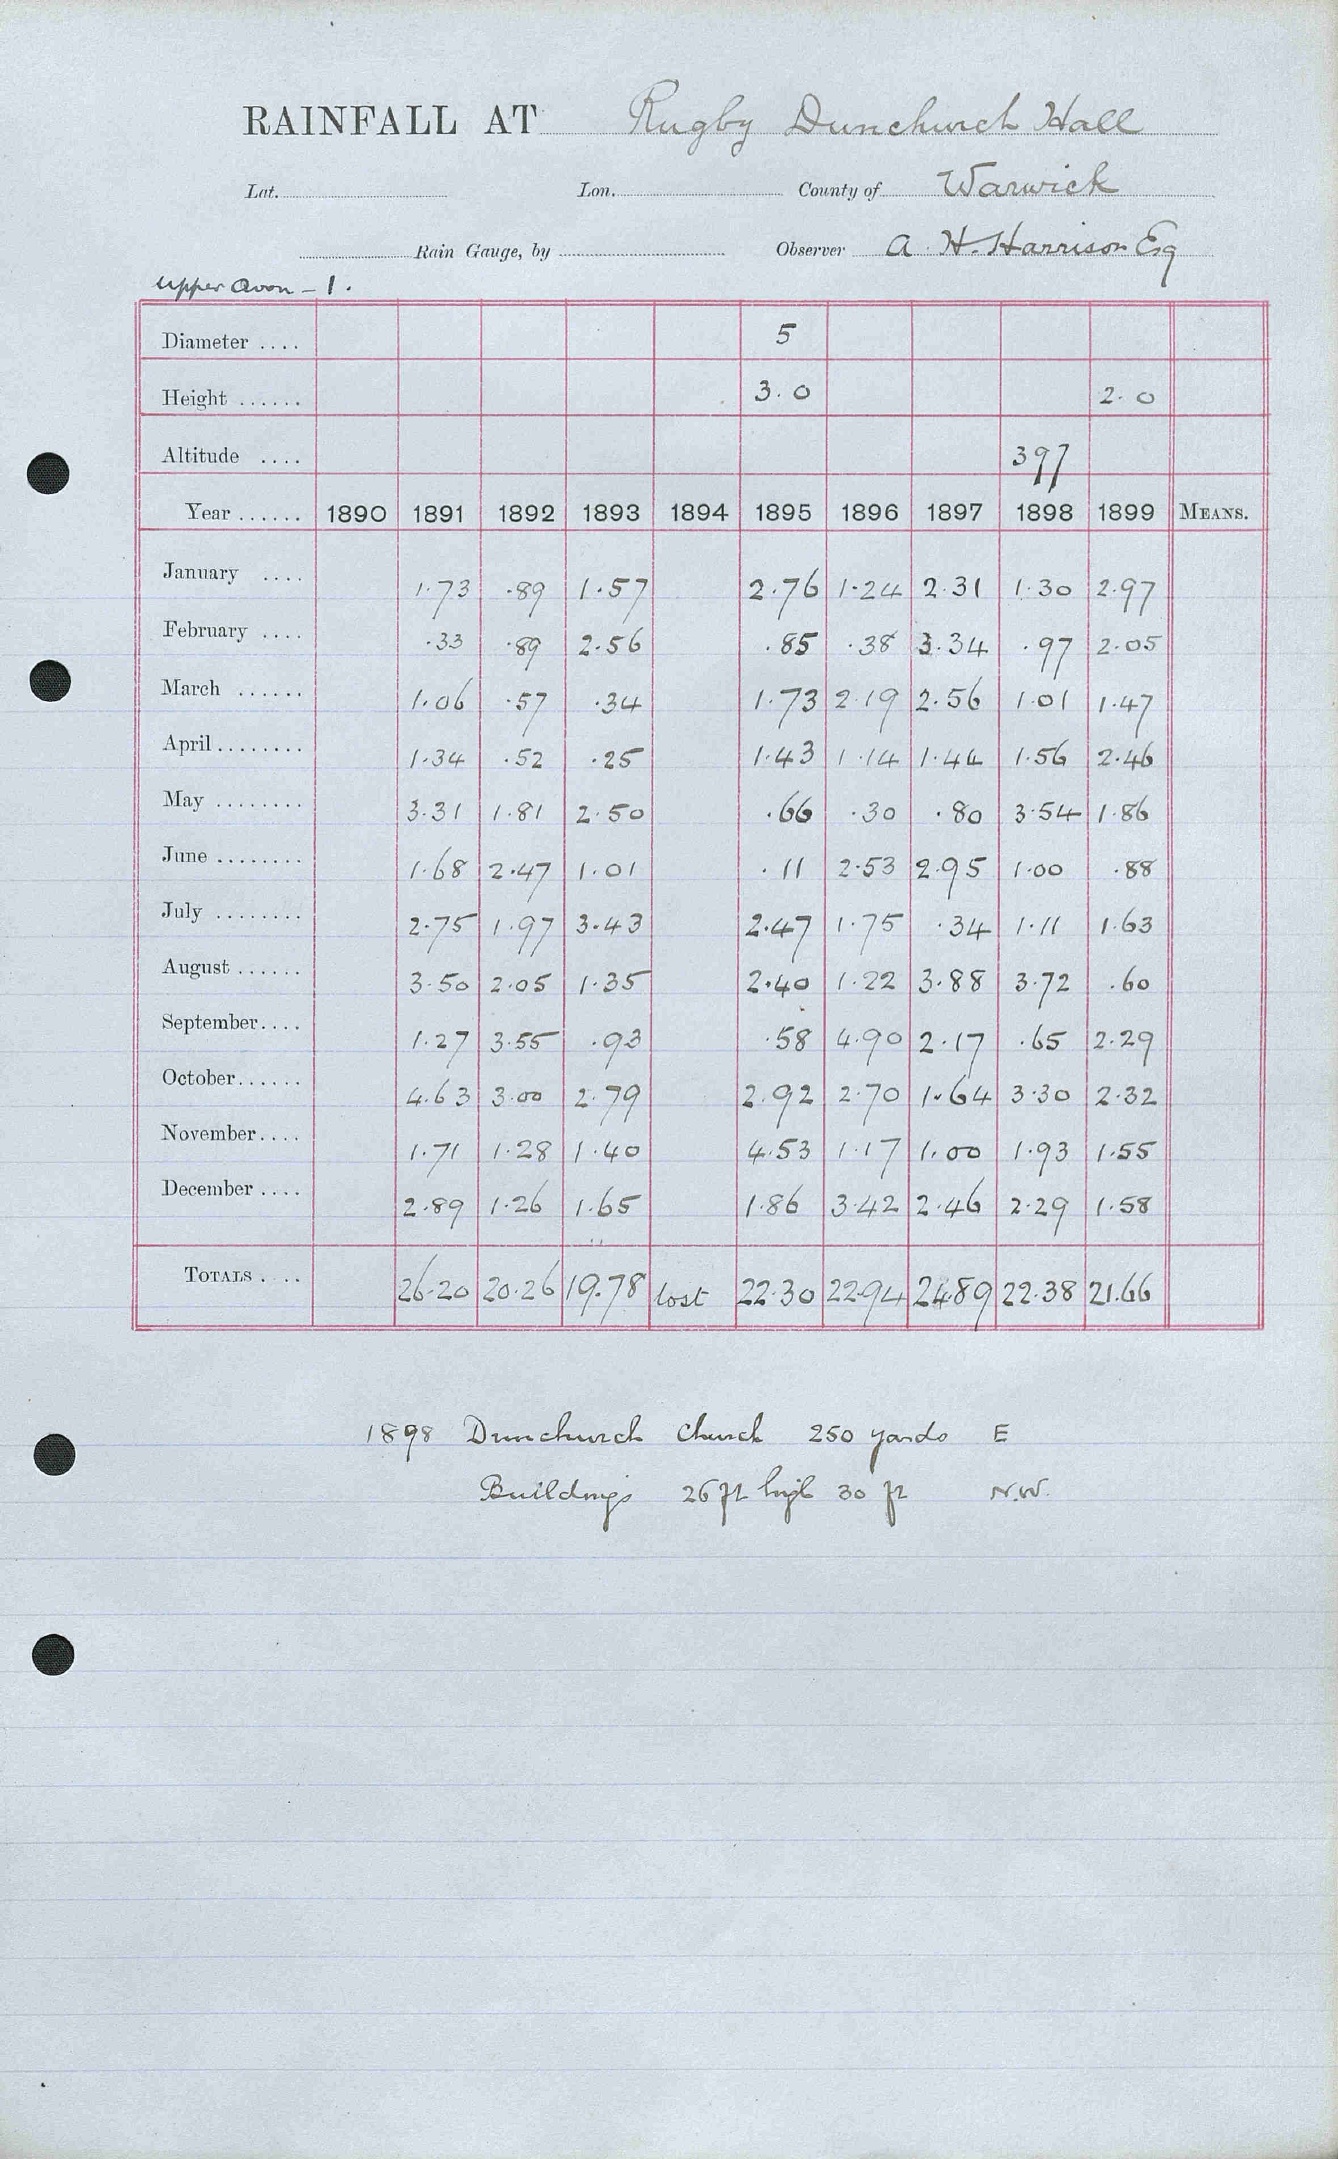 RAINFALL AT Rugby Dunchurch Hall
Lat. Lon. County of Warwick
Rain Gauge, by Observer A. H. Harrison Esq
Upper Avon - 1.
Diameter .... 5
Height ...... 3.0 2.0
Altitude .... 397
Year ...... 1890 1891 1892 1893 1894 1895 1896 1897 1898 1899 MEANS.
January .... 1.73 .89 1.57 2.76 1.24 2.31 1.30 2.97
February .... .33 .89 2.56 .85 .38 3.34 .97 2.05
March ...... 1.06 .57 .34 1.73 2.19 2.56 1.01 1.47
April ........ 1.34 .52 .25 1.43 1.14 1.44 1.56 2.46
May ........ 3.31 1.81 2.50 .66 .30 .80 3.54 1.86
June ........ 1.68 2.47 1.01 .11 2.53 2.95 1.00 .88
July ........ 2.75 1.97 3.43 2.47 1.75 .34 1.11 1.63
August ...... 3.50 2.05 1.35 2.40 1.22 3.88 3.72 .60
September.... 1.27 3.55 .93 .58 4.90 2.17 .65 2.29
October...... 4.63 3.00 2.79 2.92 2.70 1.64 3.30 2.32
November.... 1.71 1.28 1.40 4.53 1.17 1.00 1.93 1.55
December .... 2.89 1.26 1.65 1.86 3.42 2.46 2.29 1.58
TOTALS .... 26.20 20.26 19.78 lost 22.30 22.94 24.89 22.38 21.66
1898 Dunchurch Church 250 yards E
Buildings 26 ft high 30 ft N.W.